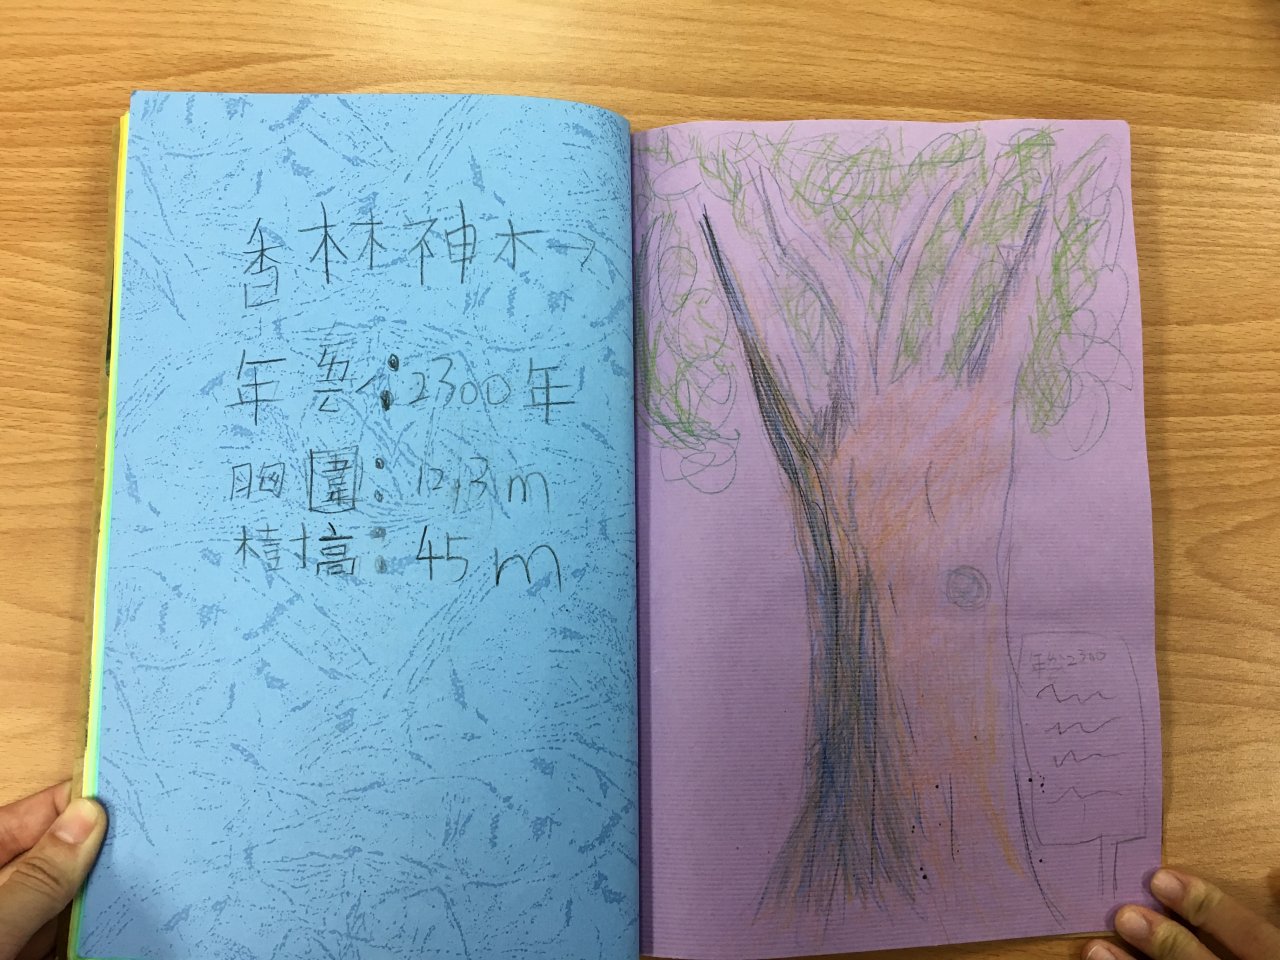 香林神木→
年齡：2300年
胸圍：12.3m
樹高：45m
年齡2300